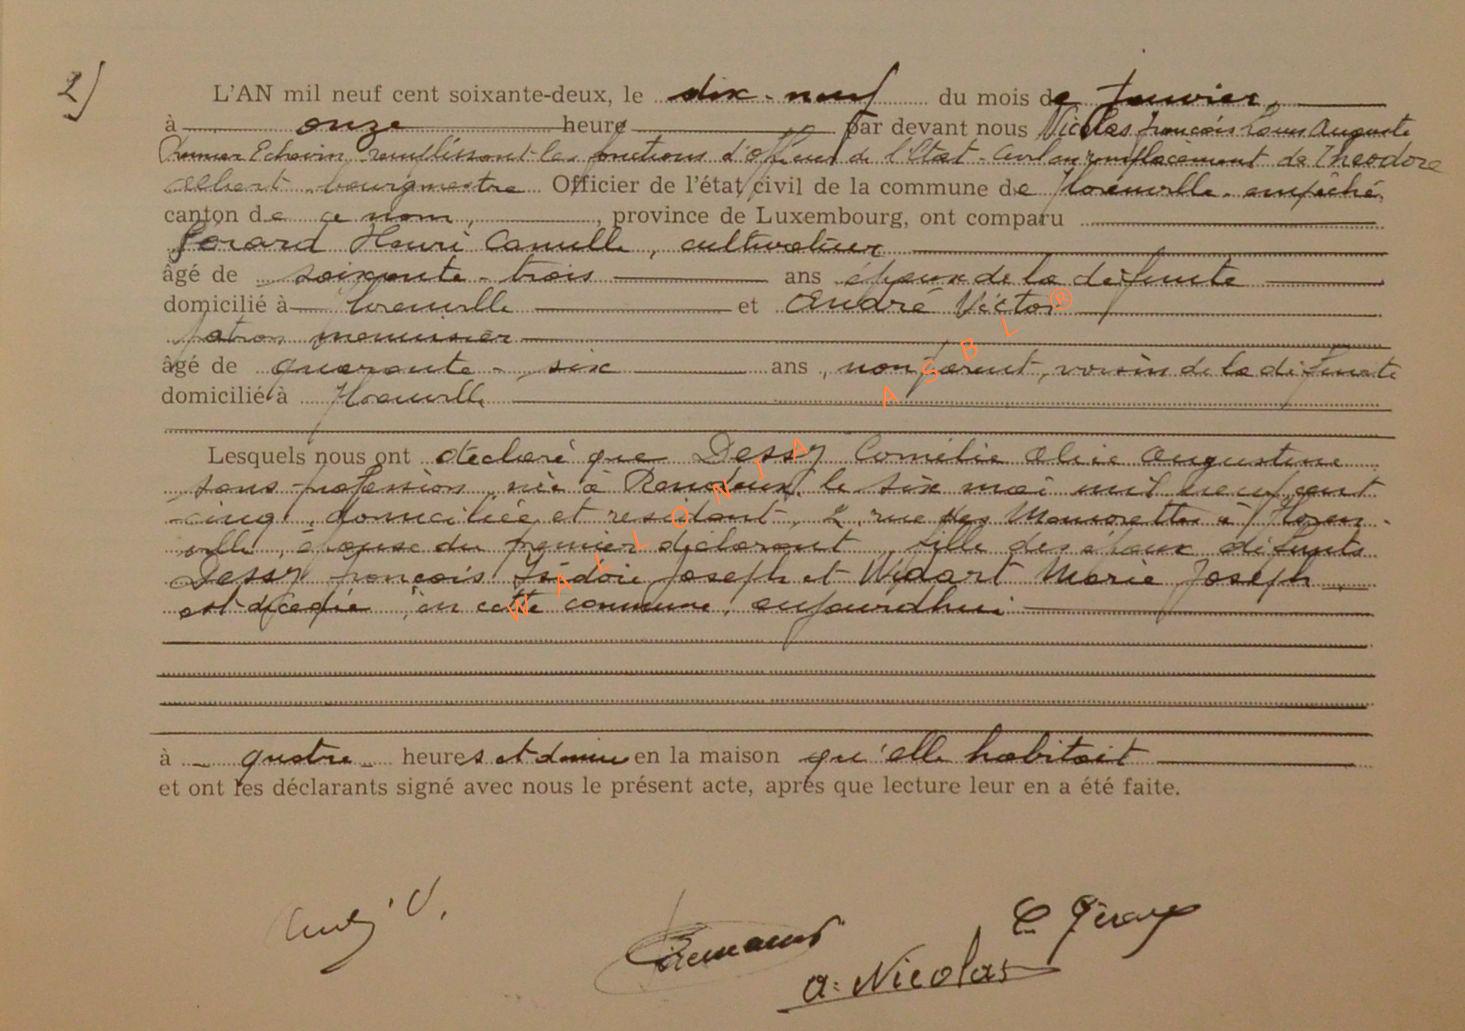 2)
L'AN mil neuf cent soixante-deux, le dix-neuf du mois de Janvier,
à onze heure par devant nous Nicolas François Louis Auguste
Premier Echevin remplissant les fonctions d'officier de l'Etat-Civil en remplacement de Théodore
Albert bourgmestre Officier de l'état civil de la commune de Florenville empêché,
canton de ce nom, province de Luxembourg, ont comparu
Gérard Henri Camille, cultivateur
âgé de soixante-trois ans époux de la défunte
domicilié à Florenville et André Victor
patron menuisier
âgé de quarante-six ans, non parent, voisin de la défunte
domicilié à Florenville
Lesquels nous ont déclaré que Dessy Cornélie Alice Augustine
sans profession, née à Rendeux, le six mai mil neuf cent
cinq, domiciliée et résidant, 2, rue des à Floren-
ville, épouse du premier déclarant, fille des époux défunts
Dessy François Isidore Joseph et Widart Marie Joseph,
est décédée, en cette commune, aujourd'hui
à quatre heures et demie en la maison qu'elle habitait
et ont les déclarants signé avec nous le présent acte, après que lecture leur en a été faite.
André V.
C Gérard
A. Nicolas
WALLONIA ASBL®